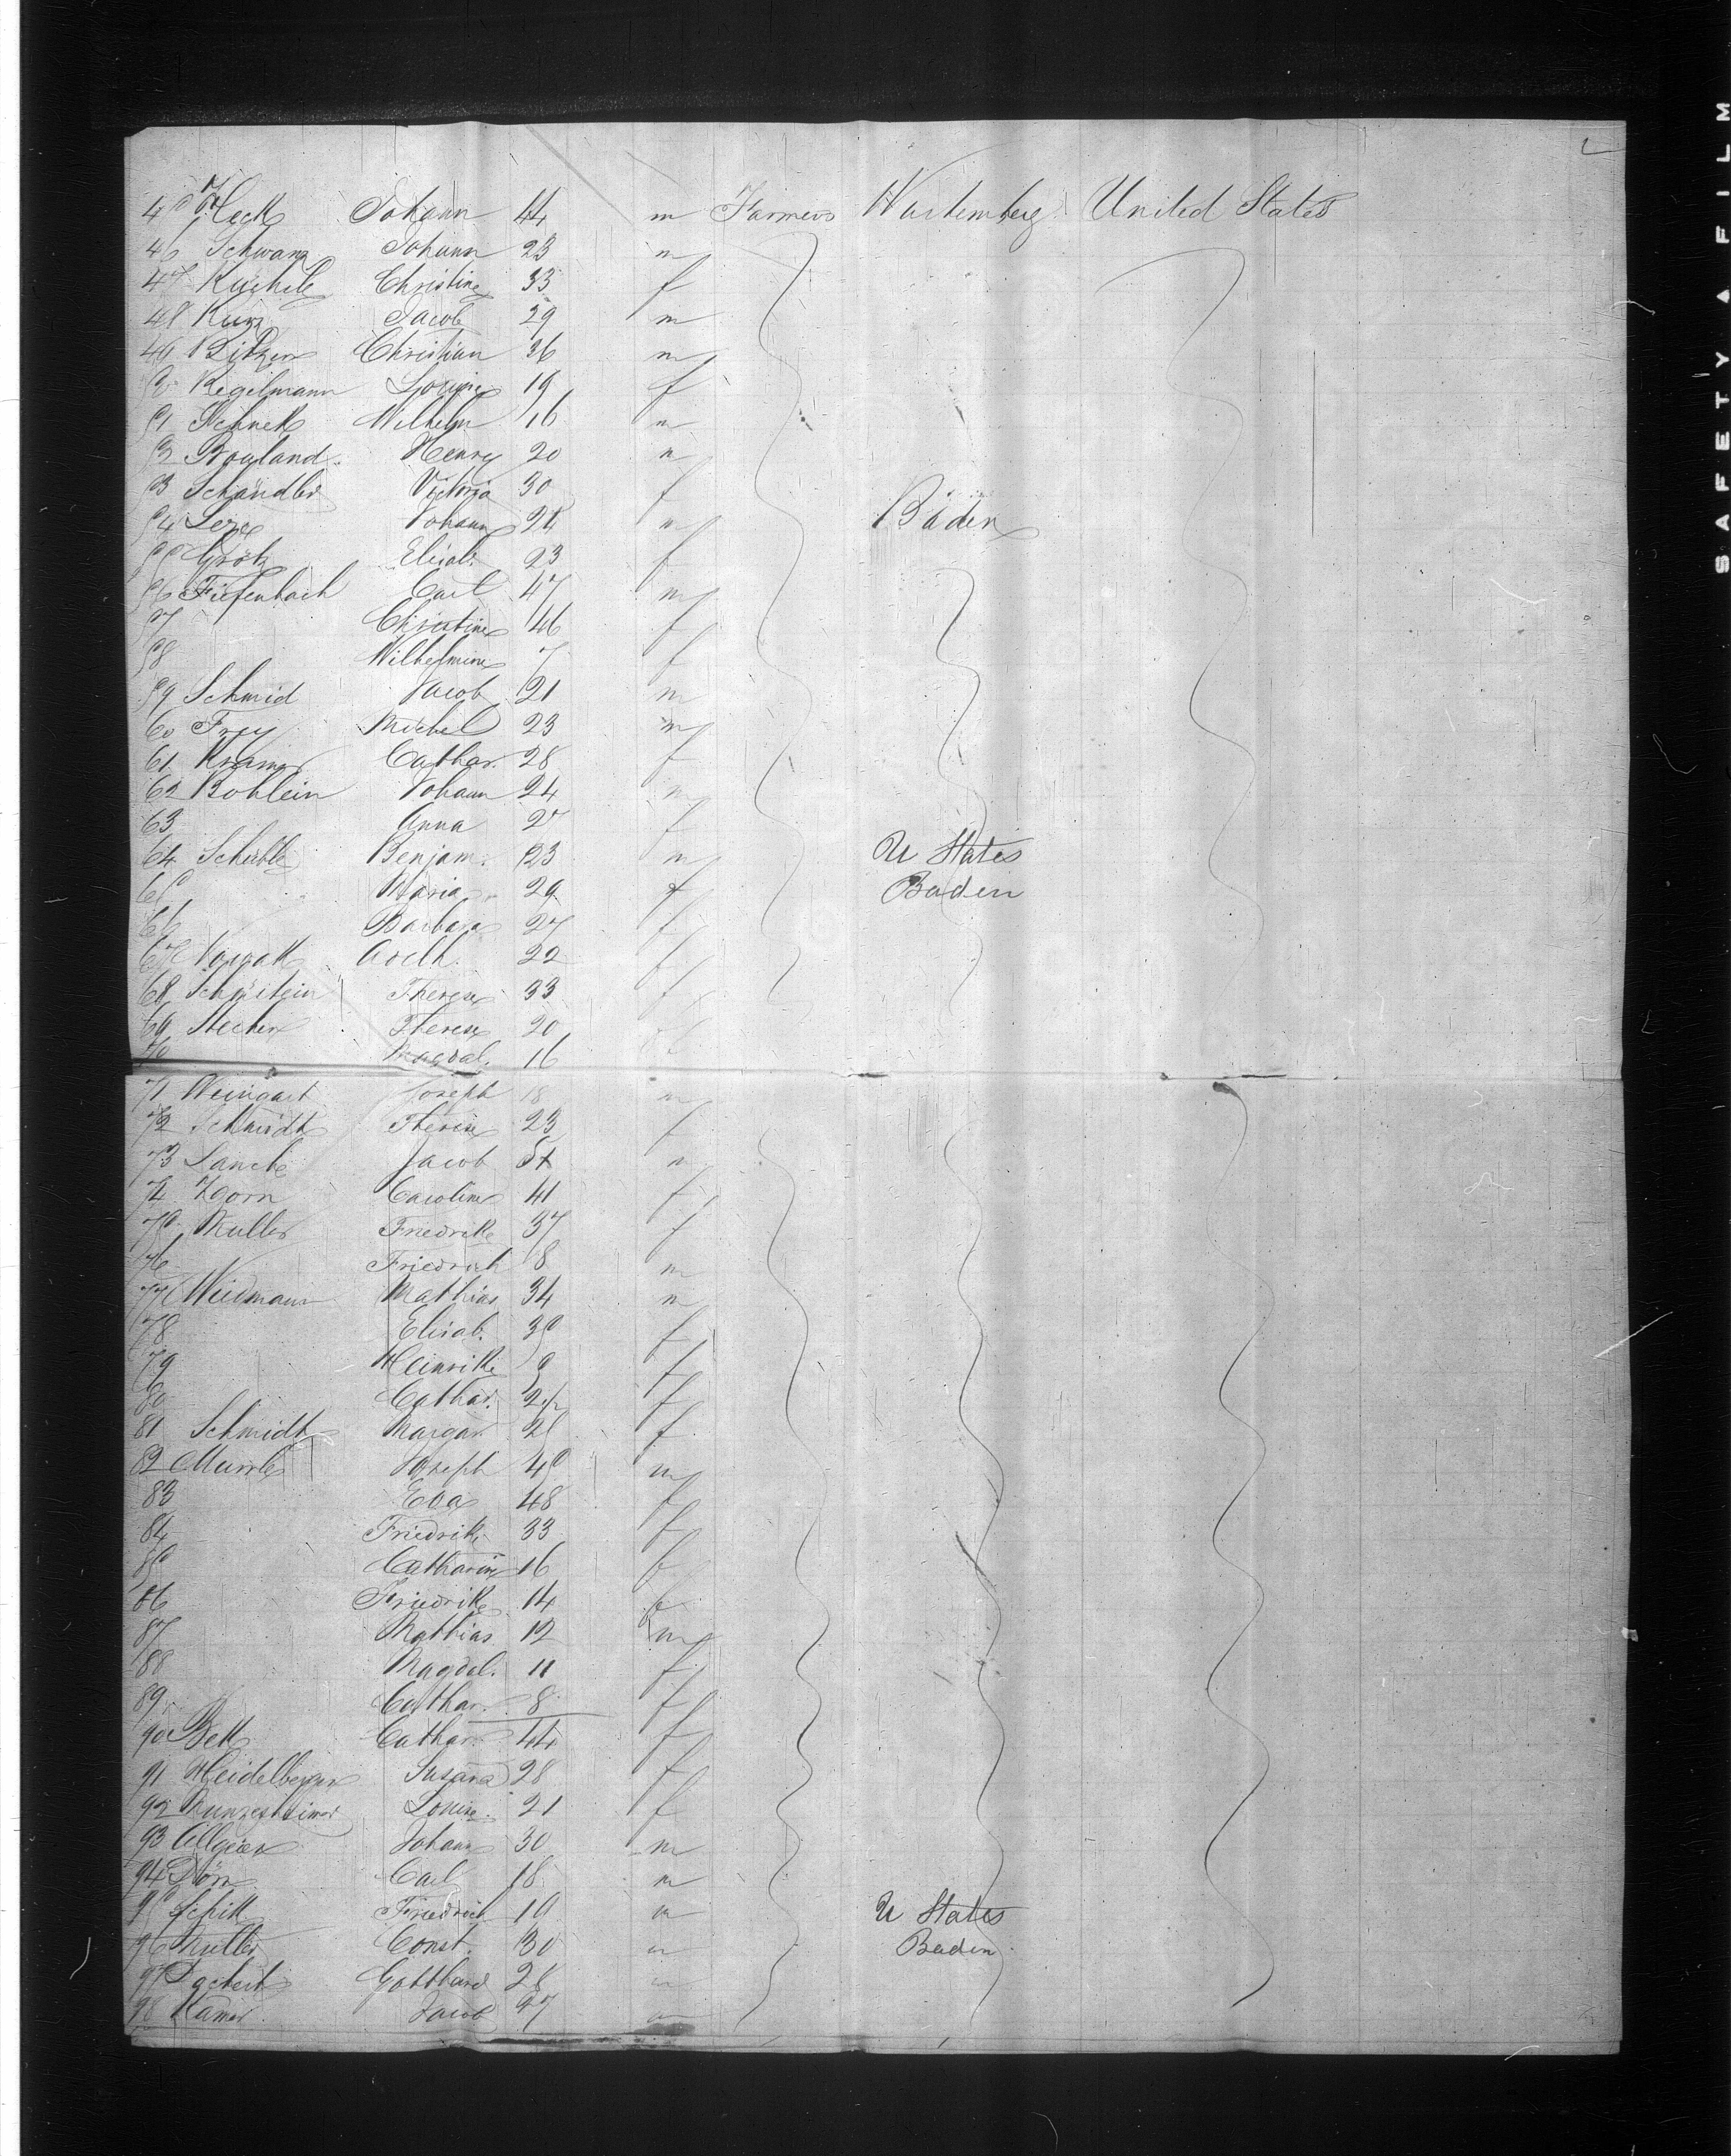 45 Heck Johann 44 m Farmers Wurtemberg United States
46 Schwarz Johann 23 m
47 Kuchele Christine 33 f
48 Kurz Jacob 29 m
49 Bitzer Christian 36 m
50 Kegelmann Louise 19 f
51 Schnek Wilhelm 16 m
52 Henry 20 m
53 Schandler Victoria 30 f
54 Johann 28 m Baden
55 Elisab. 23 f
56 Tiefenbach Carl 47 m
57 Christine 46 f
58 Wilhelmine 7 f
59 Schmid Jacob 21 m
60 Frey Michel 23 m
61 Kramer Cathar. 28 f
62 Bohlein Johann 24 m
63 Anna 27 f
64 Schuble Benjam. 23 m U States
65 Maria 29 f Baden
66 Barbara 27 f
67 22 f
68 Therese 33 f
69 Stecher Therese 20 f
70 Magdal. 16
71 Weingart Joseph 18 m
72 Schmidt Therese 23 f
73 Jacob m
74 Zorn Caroline 41 f
75 Muller Friedrike 37 f
76 Friedrich 8 m
77 Weidmann Mathias 34 m
78 Elisab. 35 f
79 Heinrike 9 f
80 Cathar. f
81 Schmidt Margar. f
82 Joseph 45 m
83 Eva 48 f
84 Friedrike 33 f
85 Catharine 16 f
86 Friedrike 14 f
87 Mathias 12 m
88 Magdal. 11 f
89 Cathar. 8 f
90 Bek Cathar. 44 f
91 Heidelberger Susana 28 f
92 Louise 21 f
93 Allgeier Johann 30 m
94 Dorn Carl 18 m
95 Schik Friedrich 19 m U States
96 Muller Const. 30 m Baden
97 Gotthard 28 m
98 Kamer Jacob 47 m
SAFETY A FILM